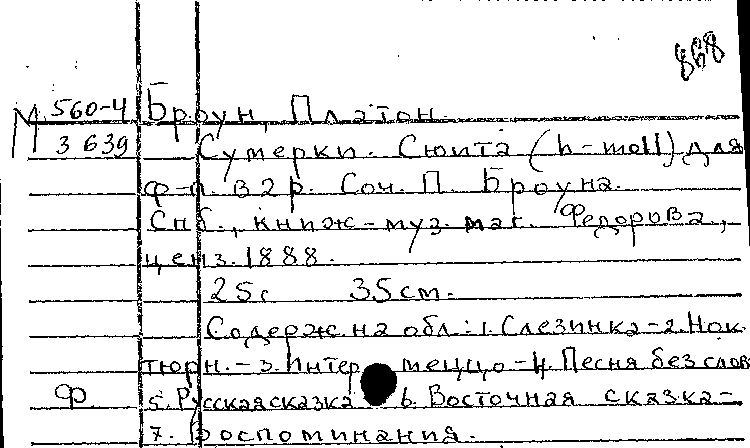 868
М 560-4 Броун, Платон.
3 639 Сумерки. Сюита (h-moll) для
ф-п. в 2 р. Соч. П. Броуна.
Спб., книж-муз. маг. Федорова,
ценз. 1888.
25с 35см.
Содерж. на обл.: 1. Слезинка - 2. Нок
тюрн. - 3. Интер меццо - 4. Песня без слов
Ф 5. Русская сказка 6. Восточная сказка -
7. Воспоминания.